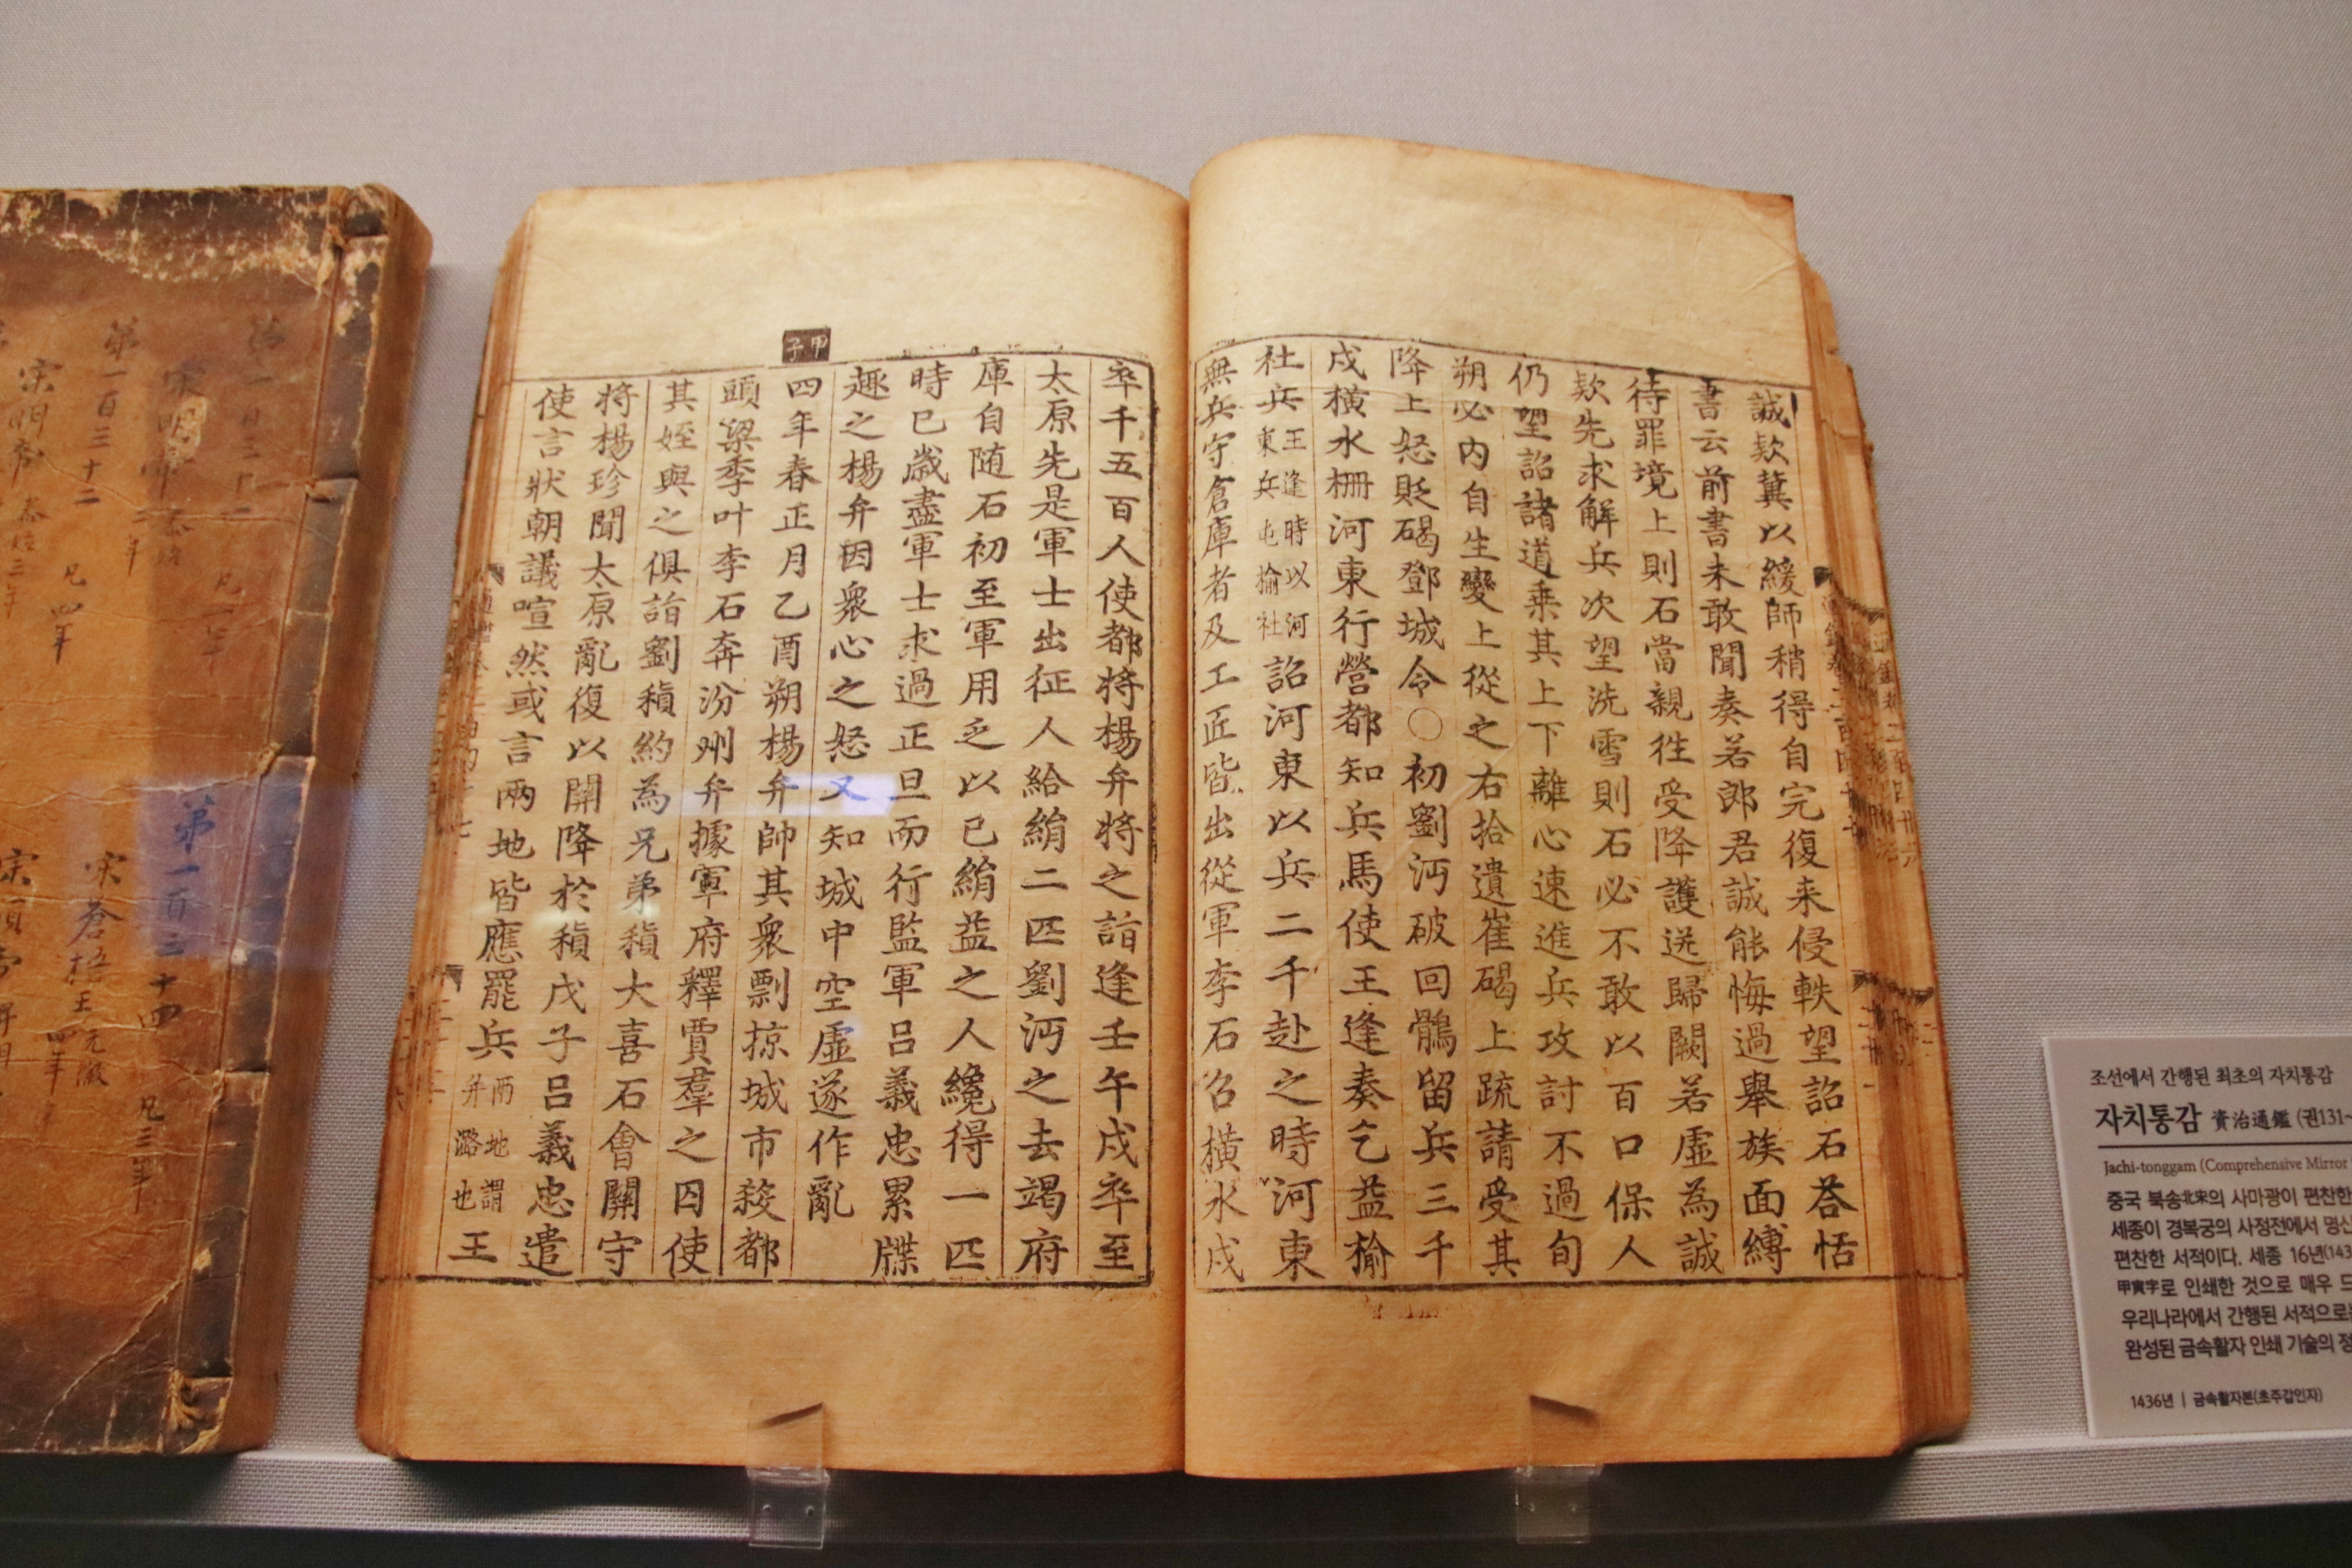 誠欵冀以緩師稍得自完復来侵軼望詔石荅恬
書云前書未敢聞奏若郎君誠能悔過舉族面縛
待罪境上則石當親徃受降護送歸闕若虚為誠
欵先求解兵次望洗雪則石必不敢以百口保人
仍望詔諸道乗其上下離心速進兵攻討不過旬
朔必内自生變上從之右拾遺崔碣上疏請受其
降上怒貶碣鄧城令〇初劉沔破回鶻留兵三千
戍横水柵河東行營都知兵馬使王逢奏乞益榆
社兵王逢時以河東兵屯榆社詔河東以兵二千赴之時河東
無兵守倉庫者及工匠皆出從軍李石召横水戍
卒千五百人使都将楊弁将之詣逢壬午戍卒至
太原先是軍士出征人給絹二匹劉沔之去竭府
庫自随石初至軍用乏以已絹益之人纔得一匹
時已歳盡軍士求過正旦而行監軍吕義忠累牒
趣之楊弁因衆心之怒又知城中空虚遂作亂
甲子
四年春正月乙酉朔楊弁帥其衆剽掠城市殺都
頭梁季叶李石奔汾州弁據軍府釋賈羣之囚使
其姪與之俱詣劉稹約為兄弟稹大喜石會關守
将楊珍聞太原亂復以關降於稹戊子吕義忠遣
使言狀朝議喧然或言兩地皆應罷兵兩地謂并潞也王
第一百三十二
宋明帝泰始三年
凡四年
第一百三十四
宋蒼梧王元徽
四年
凡三年
조선에서 간행된 최초의 자치통감
자치통감 資治通鑑 (권131~
Jachi-tonggam (Comprehensive Mirror
중국 북송北宋의 사마광이 편찬한
세종이 경복궁의 사정전에서 명신
편찬한 서적이다. 세종 16년(143
甲寅字로 인쇄한 것으로 매우 드
우리나라에서 간행된 서적으로는
완성된 금속활자 인쇄 기술의 정
1436년 | 금속활자본(초주갑인자)